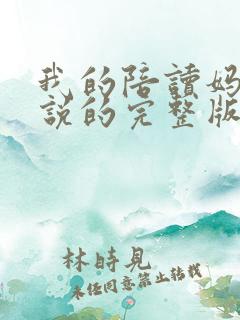 我的陪讀媽
說的完整版
林時見
未经同意禁止转载